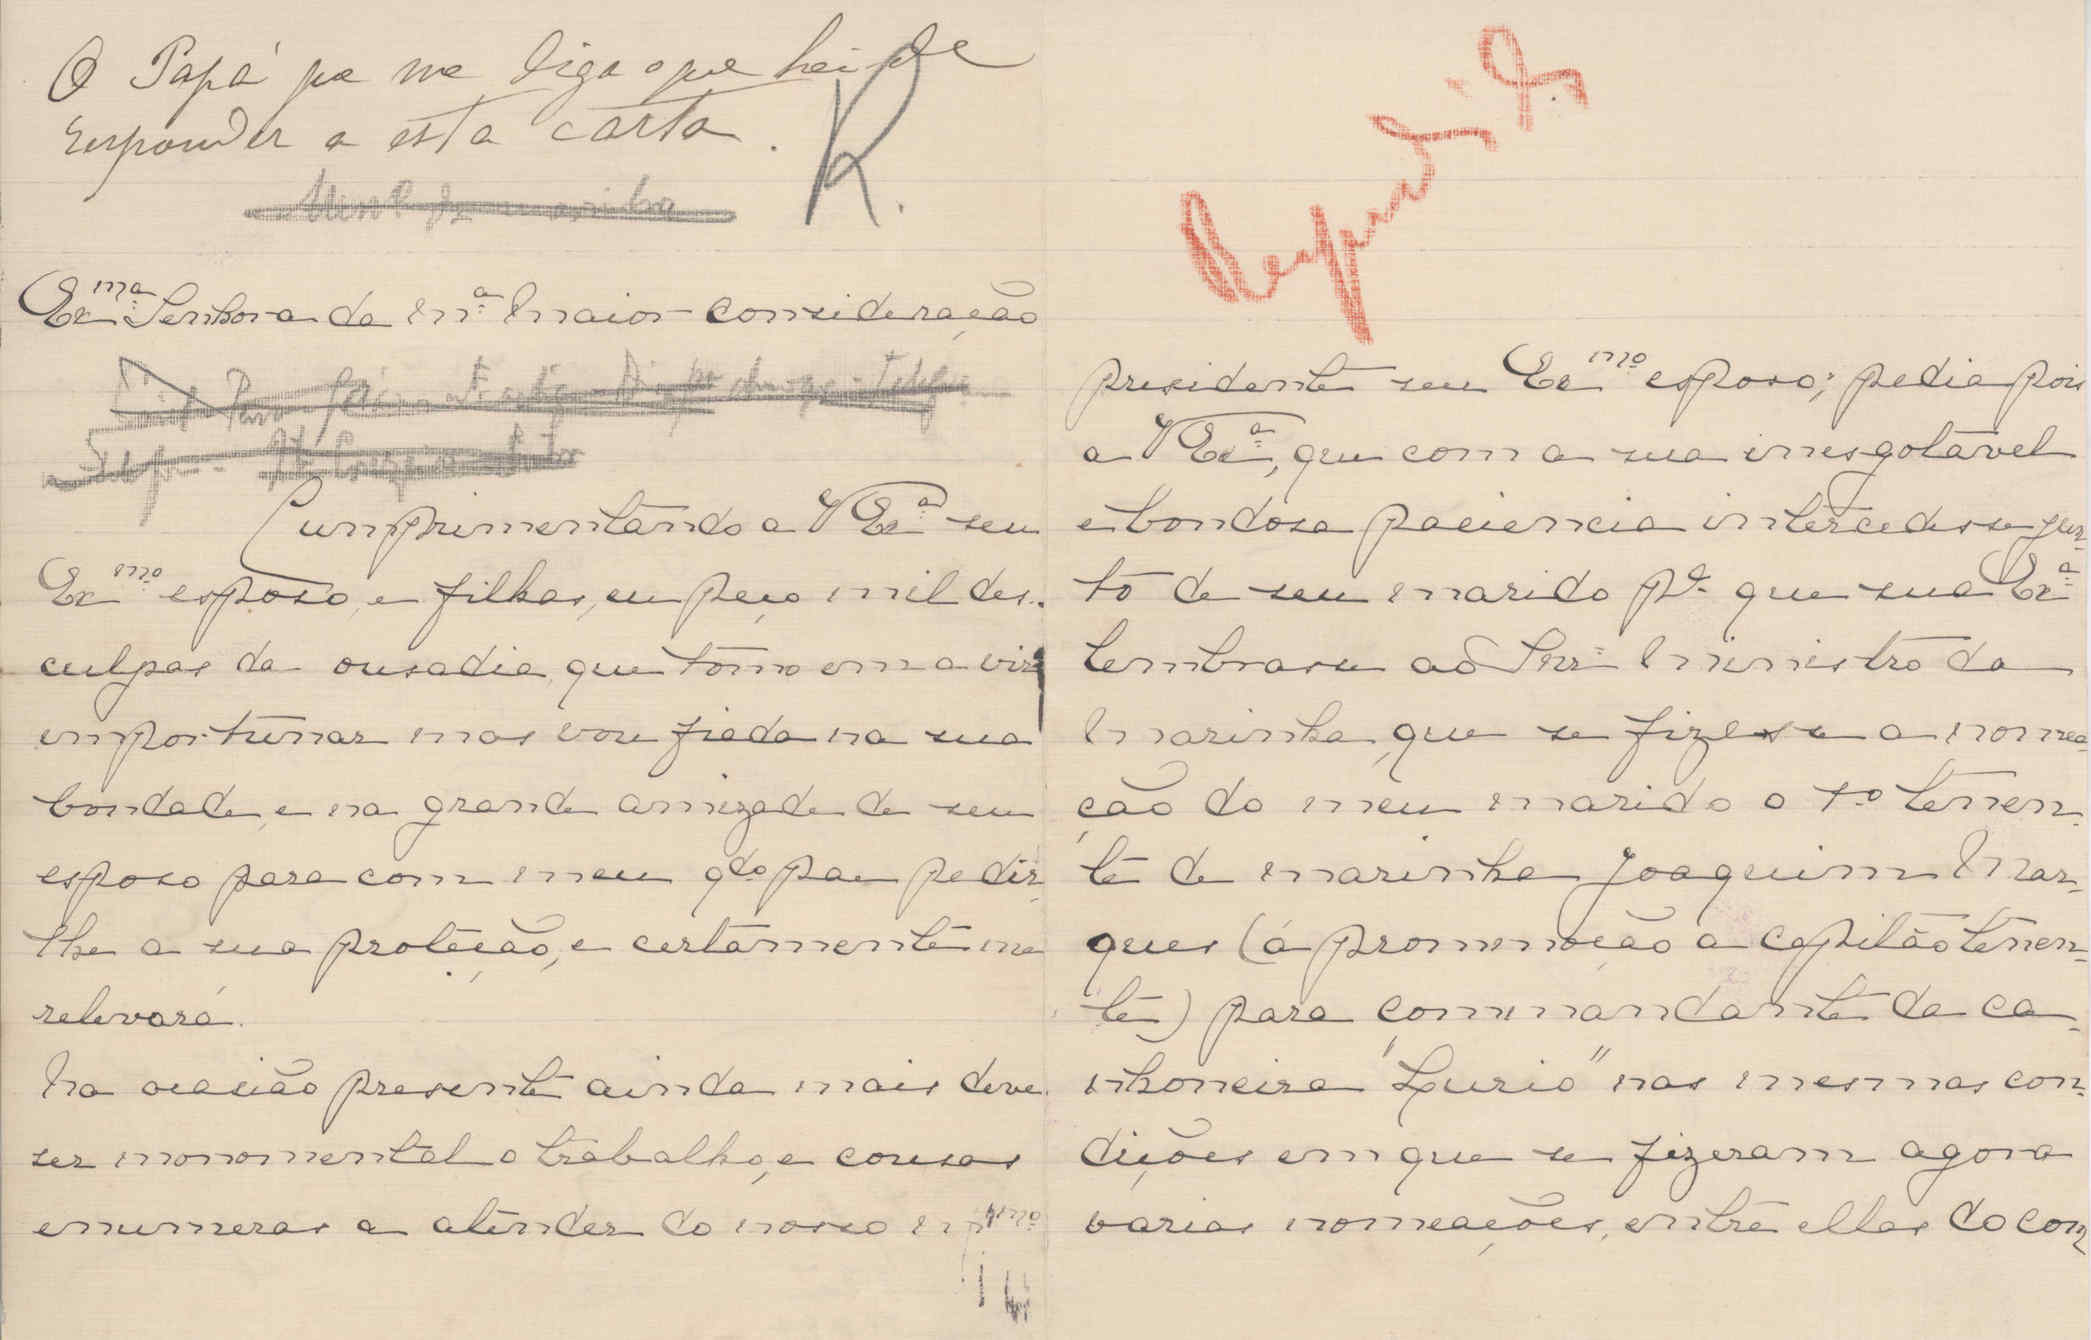 O Papá que me diga o que hei de
responder a esta carta.
R.
Exma Senhora da ma maior consideração
Cumprimentando a V Exa seu
Exmo esposo, e filhas, eu peço mil des-
culpas da ousadia, que tomo em a vir
importunar mas vou fiada na sua
bondade, e na grande amizade de seu
esposo para com meu qdo pae pedir-
lhe a sua proteção, e certamente me
relevará.
Na ocasião presente ainda mais deve
ser monomental o trabalho, e cousas
enumeras a atender do nosso
Respondido
presidente seu Exmo esposo; pedia pois
a V Exa, que com a sua inesgotavel
e bondosa paciencia intercedesse jun-
to de seu marido pa que sua Exa
lembrasse ao Snr Ministro da
Marinha, que se fizesse a nomea-
ção do meu marido o 1o tenen-
te de marinha Joaquim Mar-
ques (á prommoção a capitão tenen-
te) para commandante da ca-
nhoneira "Lurio" nas mesmas con-
dições em que se fizeram agora
varias nomeações, entre ellas do com